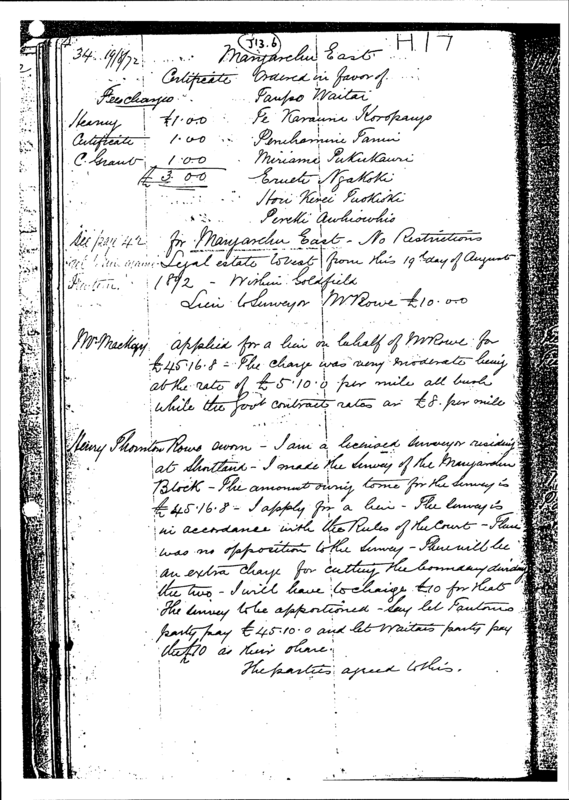 J13.6
H17
34 19/8/72 Mangarehu East
Certificate Ordered in favor of
Fees charged Taupo Waitai
Hearing £1.00 Te Karauna Koropango
Certificate 1.00 Penehamine Tanui
C. Grant 1.00 Miriama Pukukauri
£3.00 Erueti Ngakoki
Hori Kerei Tuokioki
Pereki Awhiowhio
See page 42 for Mangarehu East - No Restrictions
Legal estate to vest from this 19th day of August
1872 - Within Goldfield
Lien to Surveyor Mr Rowe £10.0.0
Mr Mackay applied for a lien on behalf of Mr Rowe for
£45.16.8 - The charge was very moderate being
at the rate of £5.10.0 per mile all bush
while the Govt contract rates are £8. per mile
Henry Thornton Rowe sworn - I am a licensed surveyor residing
at Shortland - I made the survey of the Mangarehu
Block - The amount owing to me for the survey is
£45.16.8 - I apply for a lien - The survey is
in accordance with the Rules of the Court - There
was no opposition to the survey - There will be
an extra charge for cutting the boundary dividing
the two - I will have to charge £10 for that
The survey to be apportioned - Say let
party pay £45.10.0 and let Waitais party pay
the £10 as their share.
The parties agreed to this.